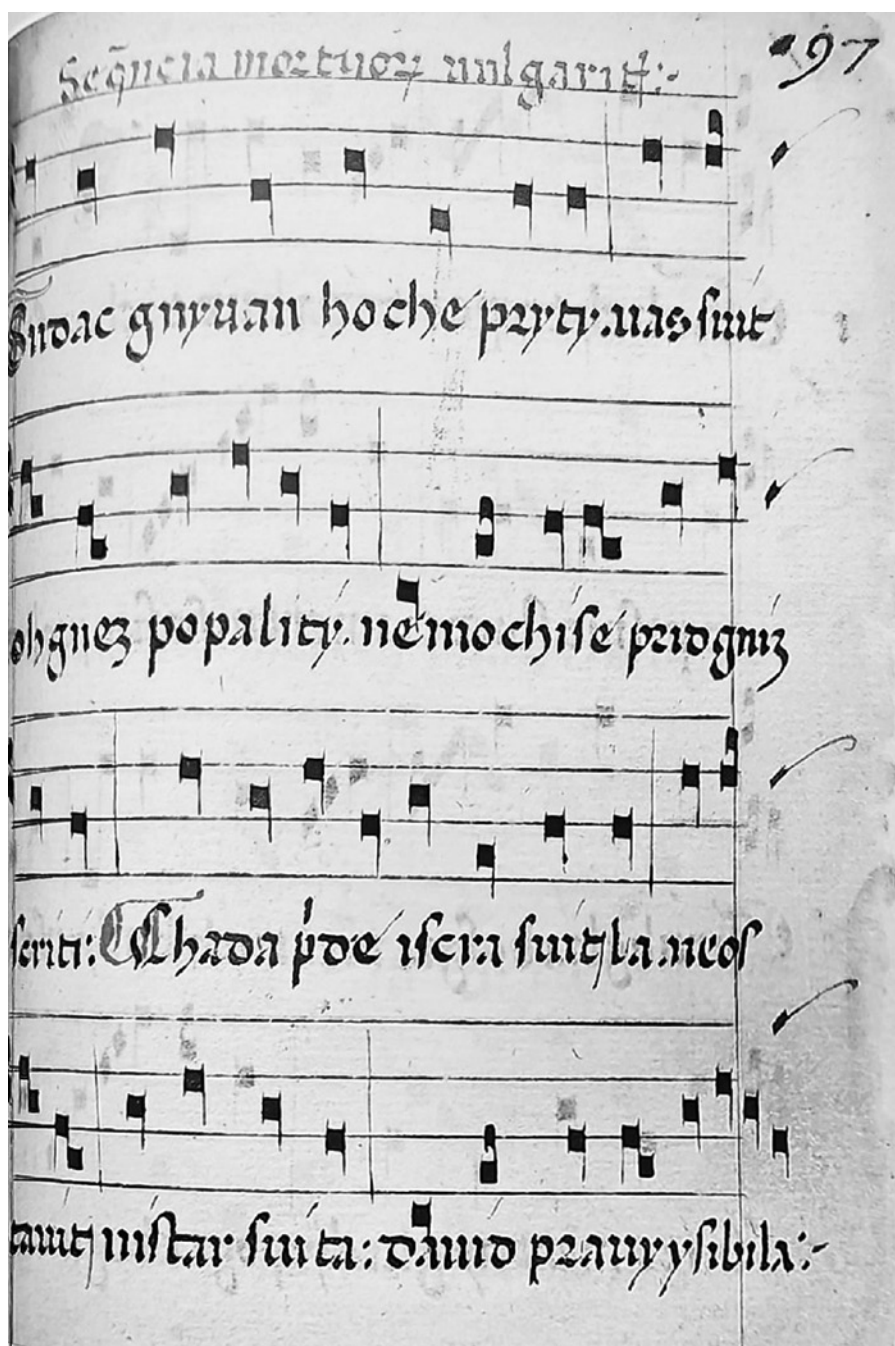 Seq̄ncia mortuoꝝ uulgarit̄:-
97
Sudac gnyuan hoche pryty.uas suit
ohgnez popality. nemochise pridgniz
scriti: Thada pͥde iscra suitla.neos
tauit nistar suita: dauid prauy y sibila:-